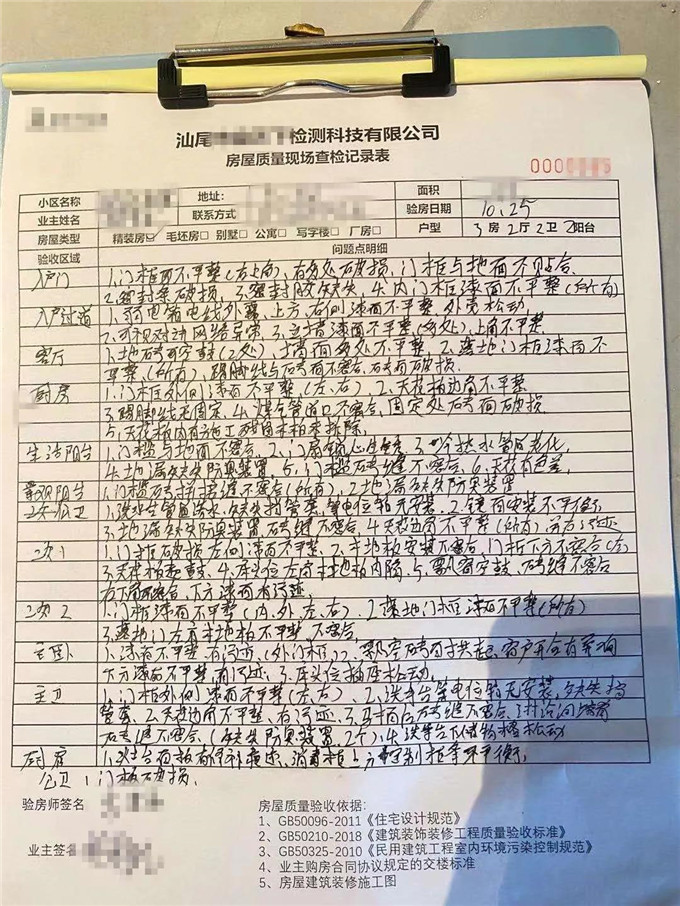 汕尾 检测科技有限公司
房屋质量现场查检记录表
0000 5
小区名称 地址: 面积
业主姓名 联系方式 验房日期 10.25
房屋类型 精装房☑ 毛坯房□ 别墅□ 公寓□ 写字楼□ 厂房□ 户型 3房2厅2卫2阳台
验收区域 问题点明细
入户门 1.门框面不平整(左上角),有多处破损,门框与地面不贴合
2.密封条破损,3.密封胶缺失,4.内门框漆面不平整(所有)
入户过道 1.弱电箱电线外露,上方右侧漆面不平整,外壳松动,
2.可视对讲网络异常,3.墙漆面不平整(多处),上角不平整.
客厅 1.地砖空鼓(2处),墙面多处不平整,2.落地门框漆面不
平整(所有),踢脚线与砖面不密合,砖面破损.
厨房 1.门框外侧漆面不平整(左、右),2.天花板边角不平整
3.踢脚线无固定,4.煤气管道口不密合,固定处砖面破损
5.天花板内有施工残留木柏未拆除,
生活阳台 1.门槛与地面不密合,2.门扇锁心生锈,3.冷热水管口老化
4.地漏缺失防臭装置,5.门槛砖缝不密合,6.天花有色差,
景观阳台 1.门槛砖拼接缝不密合(所有),2.地漏缺失防臭装置
次公卫 等电位箱无安装,2.镜面安装不平衡,
3.地漏缺失防臭装置,砖缝不密合,4.天花边角不平整(所有)
次卧1 1.门框破损,左侧漆面不平整,2.木地板安装不密合,门框下方不密合(左)
4.床头位左角木地板内陷,5.飘窗空鼓,砖缝不密合
下方漆面有污迹,
次卧2 1.门框漆面不平整(内、外、左、右),2.落地门框漆面不平整(所有)
3.落地门左角木地板不平整,不密合,
主卧 1.漆面不平整,有污迹(外门框),2.飘窗砖
下方漆面不平整,有污迹,3.床头位插座松动,
主卫 1.门框外侧漆面不平整(左、右),2.洗手台等电位箱无安装,缺失挡
管套,2.天花边角不平整,有污迹,3.马桶后砖缝不密合,淋浴间
砖缝不密合,(缺失防臭装置2个),4.洗手台下储物柜松动
厨房 1.灶台面板有修补痕迹,消毒柜上方 柜条不平衡,
公卫:门板破损,
验房师签名
业主签名
房屋质量验收依据:
1、GB50096-2011《住宅设计规范》
2、GB50210-2018《建筑装饰装修工程质量验收标准》
3、GB50325-2010《民用建筑工程室内环境污染控制规范》
4、业主购房合同协议规定的交楼标准
5、房屋建筑装修施工图